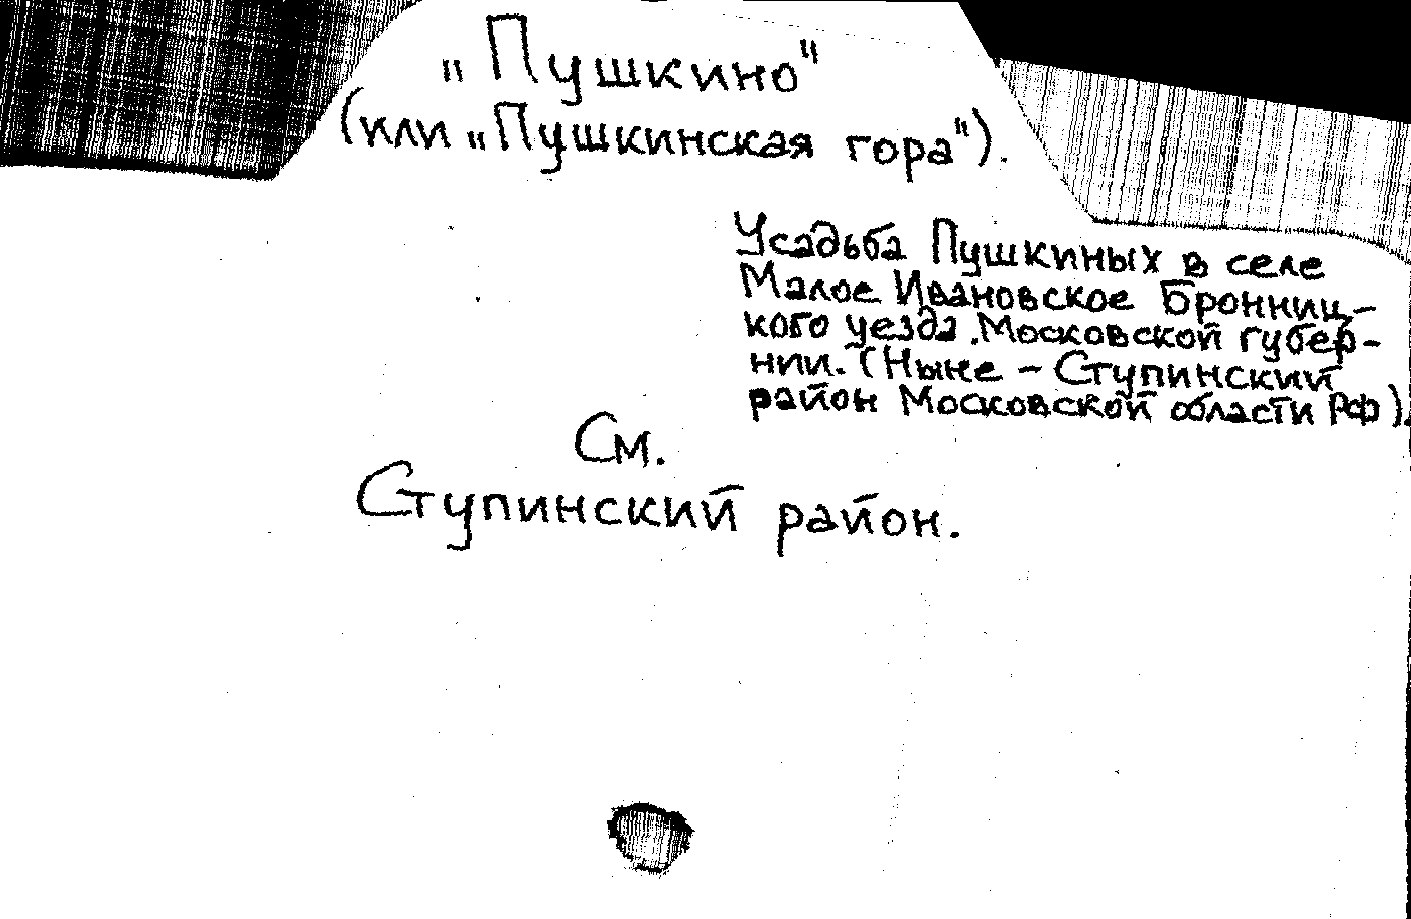 „Пушкино"
(или „Пушкинская гора").
Усадьба Пушкиных в селе
Малое Ивановское Бронниц-
кого уезда Московской губер-
нии. (Ныне – Ступинский
район Московской области РФ).
См.
Ступинский район.